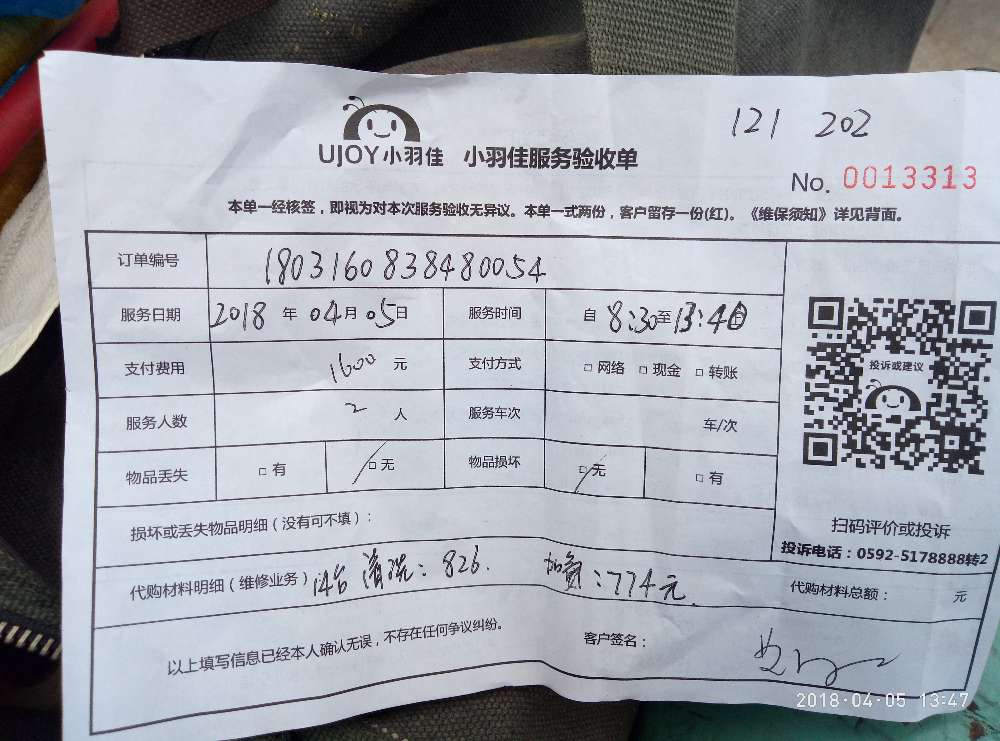 121 202
UJOY小羽佳 小羽佳服务验收单
No. 0013313
本单一经核签，即视为对本次服务验收无异议。本单一式两份，客户留存一份(红)。《维保须知》详见背面。
订单编号 1803160838480054
服务日期 2018 年 04 月 05 日 服务时间 自 8:30 至 13:40
支付费用 1600 元 支付方式 □ 网络 □ 现金 □ 转账
投诉或建议
服务人数 2 人 服务车次 车/次
物品丢失 □ 有 □ 无 物品损坏 □ 无 □ 有
损坏或丢失物品明细（没有可不填）：
扫码评价或投诉
投诉电话：0592-5178888转2
代购材料明细（维修业务）14台 清洗：826. 加氟：774元. 代购材料总额： 元
以上填写信息已经本人确认无误，不存在任何争议纠纷。 客户签名：
2018-04-05 13:47